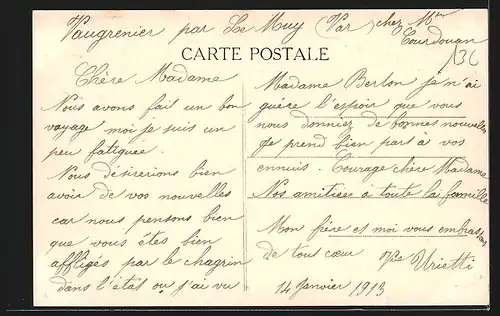 Vaugrenier par Le Muy (Var) chez Mme Courdouan
136
CARTE POSTALE
Chère Madame
Nous avons fait un bon
voyage moi je suis un
peu fatiguée.
Nous désirerions bien
avoir de vos nouvelles
car nous pensons bien
que vous êtes bien
affligés par le chagrin
dans l'état ou j'ai vu
Madame Berton je n'ai
guère l'espoir que vous
nous donniez de bonnes nouvelles
je prend bien part à vos
ennuis. Courage chère Madame
Nos amitiées à toute la famille
Mon frère et moi vous embrassons
de tout cœur Vve Urietti
14 Janvier 1913